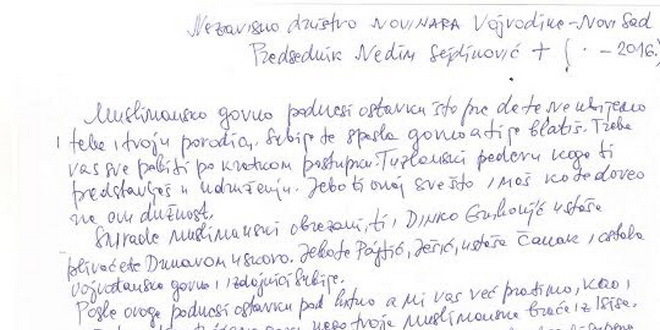 Nezavisno društvo NOVINARA Vojvodine-Novi Sad
Predsednik Nedim Sejdinović + ( · - 2016.)
Muslimansko govno podnesi ostavku što pre da te ne ubijemo
i tebe i tvoju porodicu. Srbija te spasla govno a ti je blatiš. Treba
vas sve pobiti po kratkom postupku. Tuzlanski pederu koga ti
predstavljaš u udruženju. Jebo ti onaj sve što imaš ko te doveo
na ovu dužnost.
Smrade muslimanski obrezani, ti i DINKO Gruhonjić ustaša
plivaćete Dunavom uskoro. Jebo te Pajtić, Ješić, ustaša Čanak i ostala
vojvođanska govna i izdajnici Srbije.
Posle ovoga podnesi ostavku pod hitno a mi vas već pratimo, kao i
nego tvoje muslimanske braće iz Isisa.